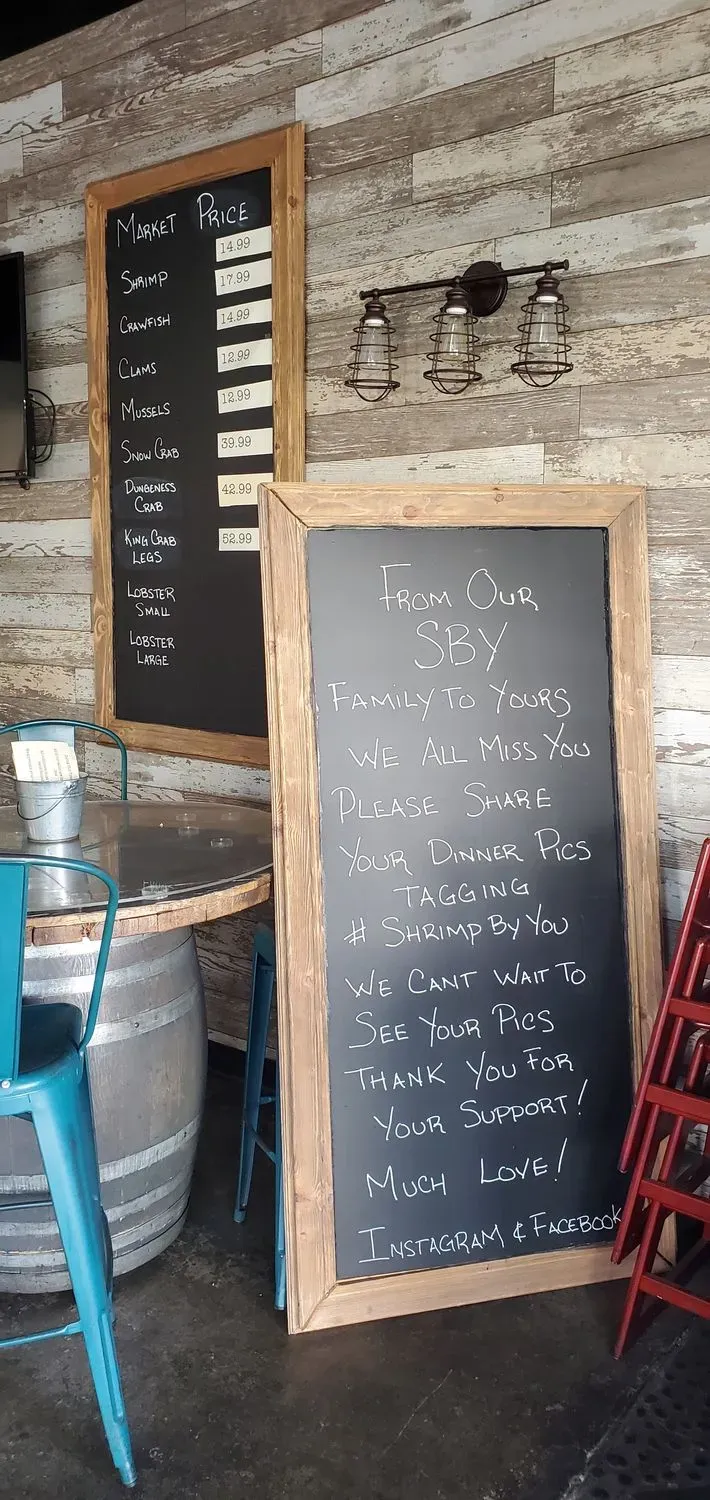 MARKET PRICE
14.99
SHRIMP 17.99
CRAWFISH 14.99
CLAMS 12.99
MUSSELS 12.99
SNOW CRAB 39.99
DUNGENESS 42.99
CRAB
KING CRAB 52.99
LEGS
LOBSTER
SMALL
LOBSTER
LARGE
FROM OUR
SBY
FAMILY TO YOURS
WE ALL MISS YOU
PLEASE SHARE
YOUR DINNER PICS
TAGGING
# SHRIMP BY YOU
WE CANT WAIT TO
SEE YOUR PICS
THANK YOU FOR
YOUR SUPPORT!
MUCH LOVE!
INSTAGRAM & FACEBOOK